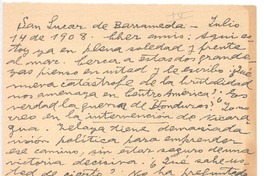 San Lucar de Barrameda.- Julio
14 de 1908. Cher amic: Aquí es
toy ya en plena soledad y frente
al mar. Cerca a estados grande
pienso en usted y le escribo. ¿Qué
nueva catástrofe de la brutalidad
es amenaza en Centro América? ¿Es
verdad la guerra de Honduras? ¿Yo no
creo en la intervención de Nicara
gua. Zelaya tiene demasiada
visión política para emprender
ese camino, sin estar seguro de una
victoria decisiva. ¿Qué sabe us
ted de cierto? No ha preguntado